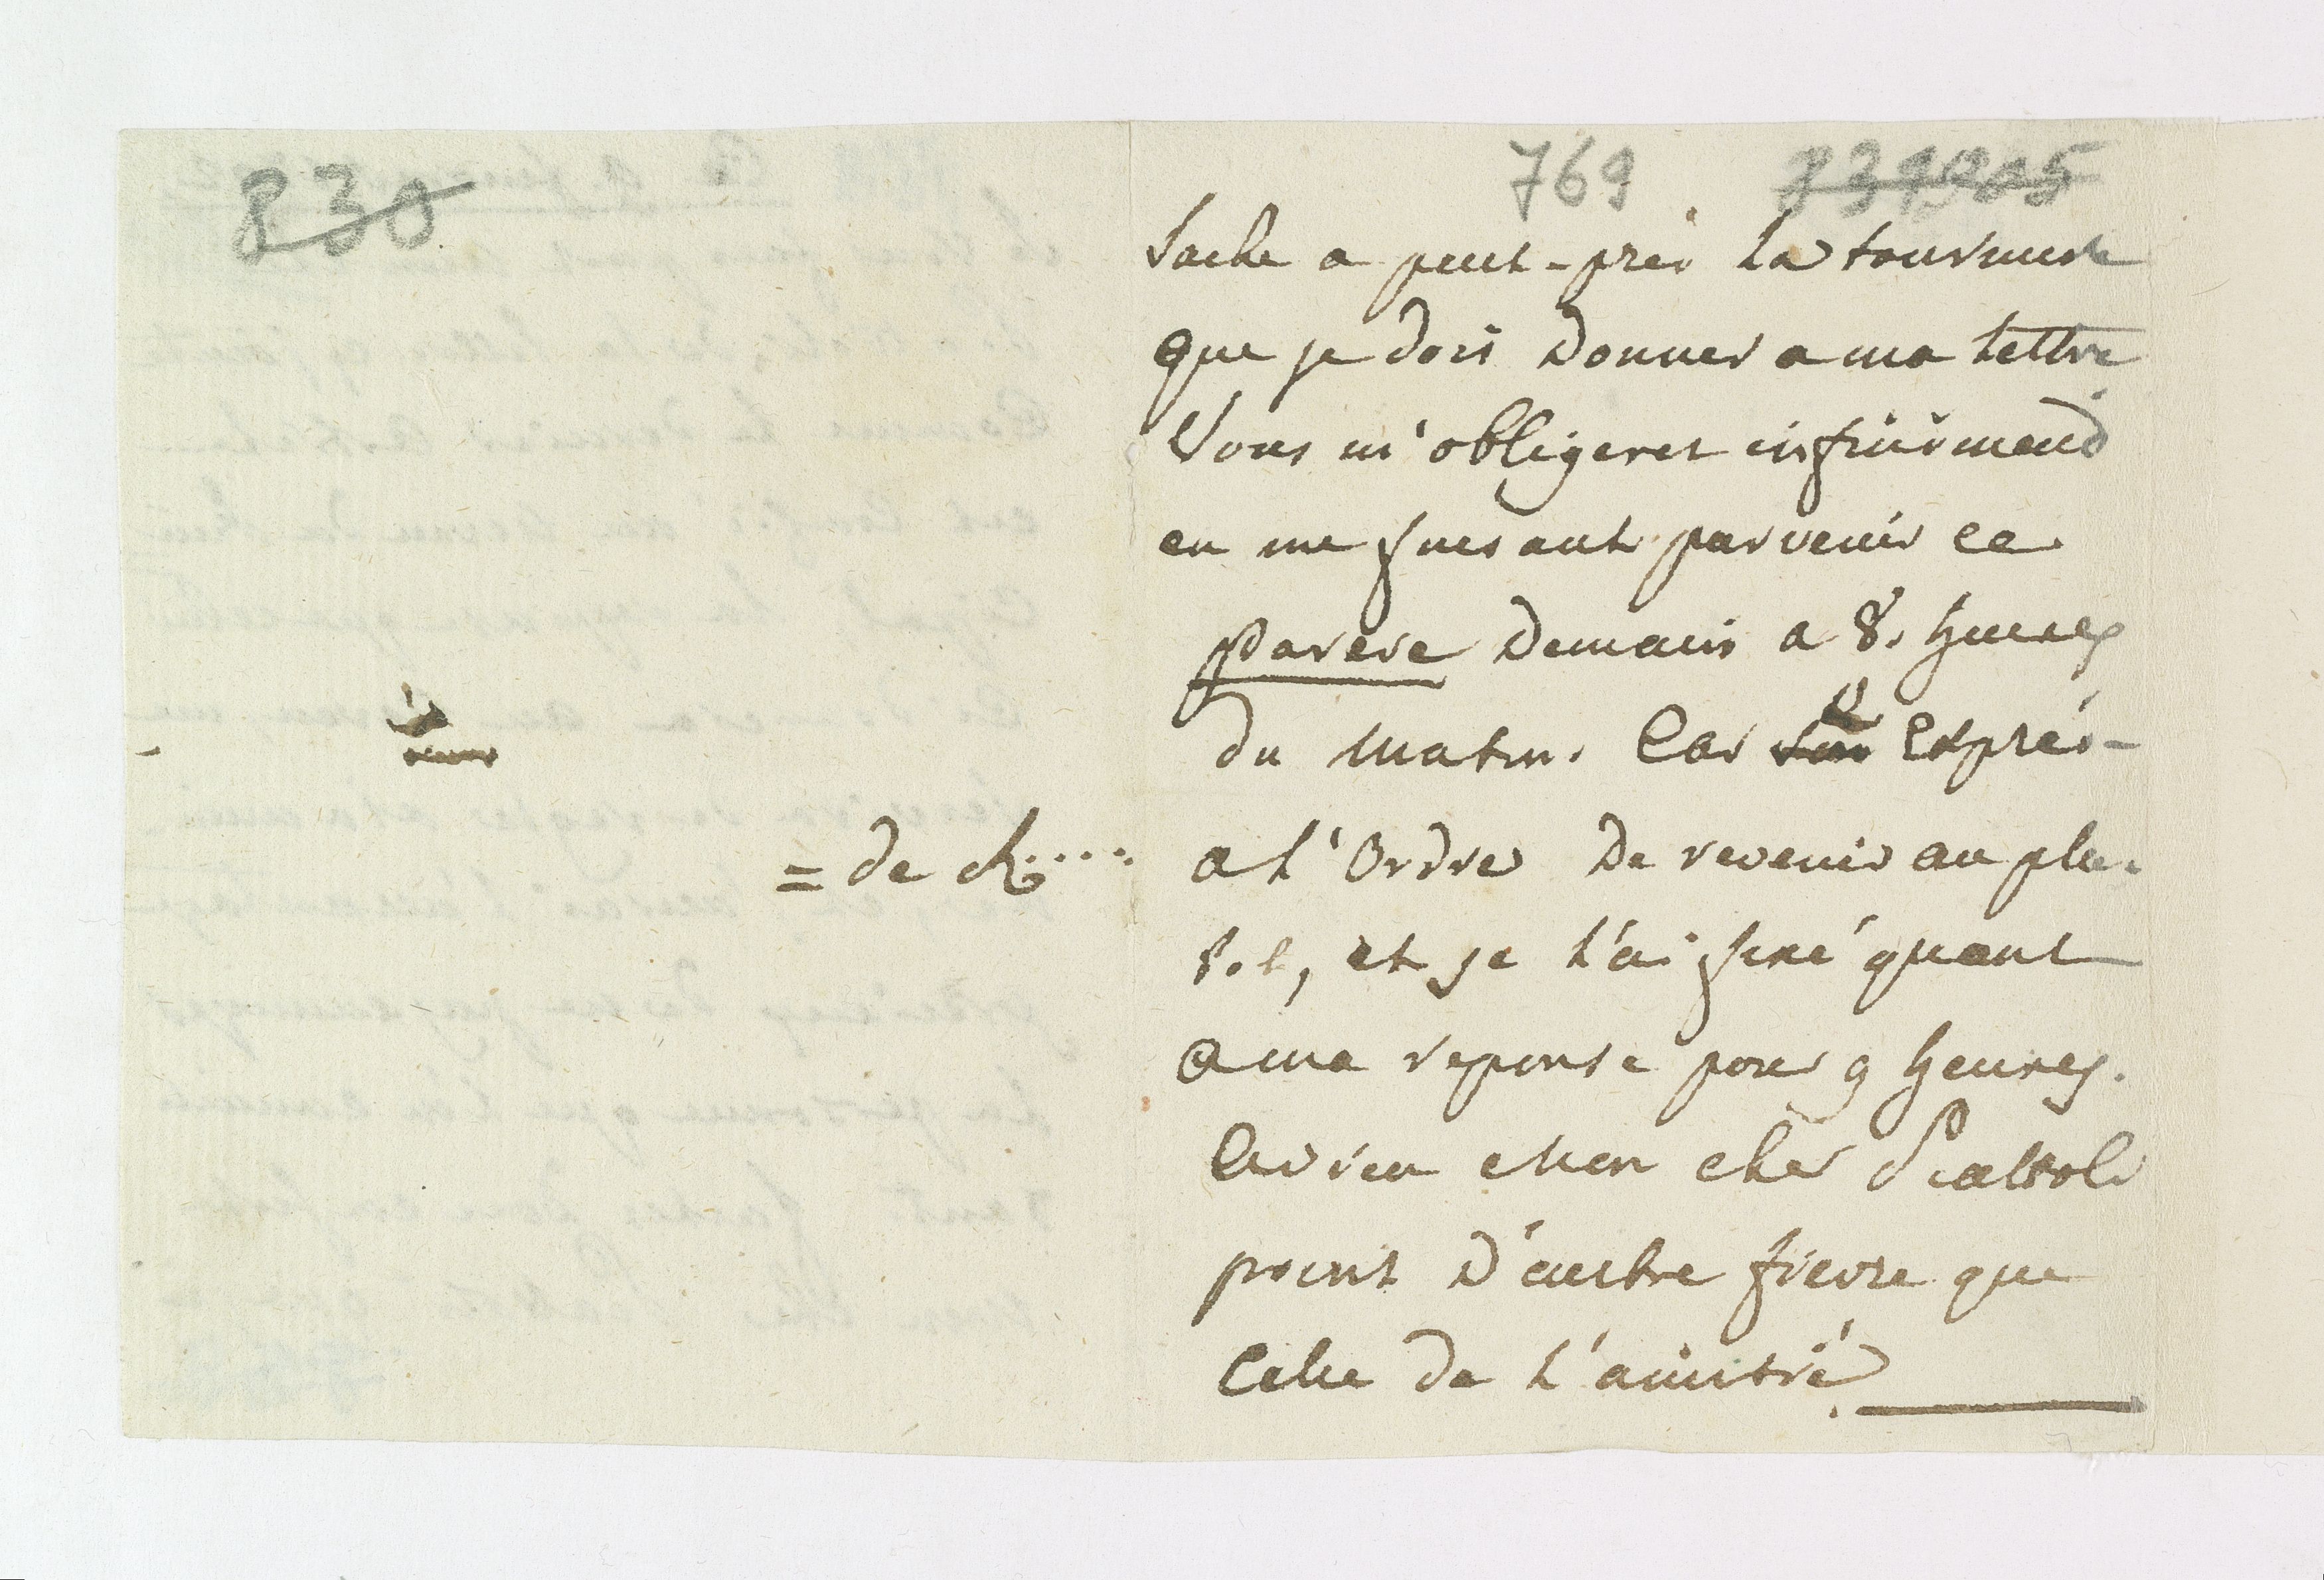 830
769
sache a peut-près la tournure
que je dois donner a ma lettre
Vous m'obligerez infiniment
en me faisant parvenir ce
parere demain a 8. heures
du matin. Car l'Exprés
= de ch.....
a l'Ordre de revenir au plu-
tot, et je l'ai fixé quant
a ma reponse pour 9 heures.
Adieu Mon cher Piattoli
point d'autre fievre que
Celle de l'amitié